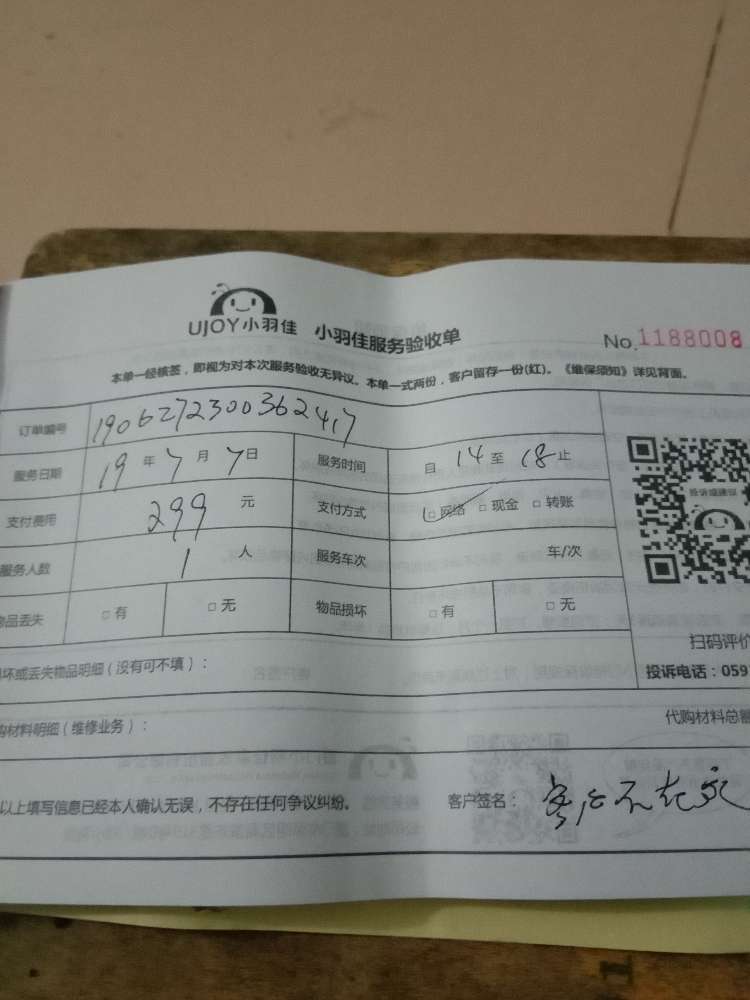 UJOY小羽佳 小羽佳服务验收单 No.1188008
本单一经核签，即视为对本次服务验收无异议。本单一式两份，客户留存一份(红)。《维保须知》详见背面。
订单编号 190627230036241,7
服务日期 19年7月7日 服务时间 自14至18止
支付费用 299元 支付方式 □网络 □现金 □转账
服务人数 1人 服务车次 车/次
物品丢失 □有 □无 物品损坏 □有 □无
扫码评价
坏或丢失物品明细（没有可不填）： 投诉电话：059
购材料明细（维修业务）： 代购材料总额
以上填写信息已经本人确认无误，不存在任何争议纠纷。 客户签名：客户不在家